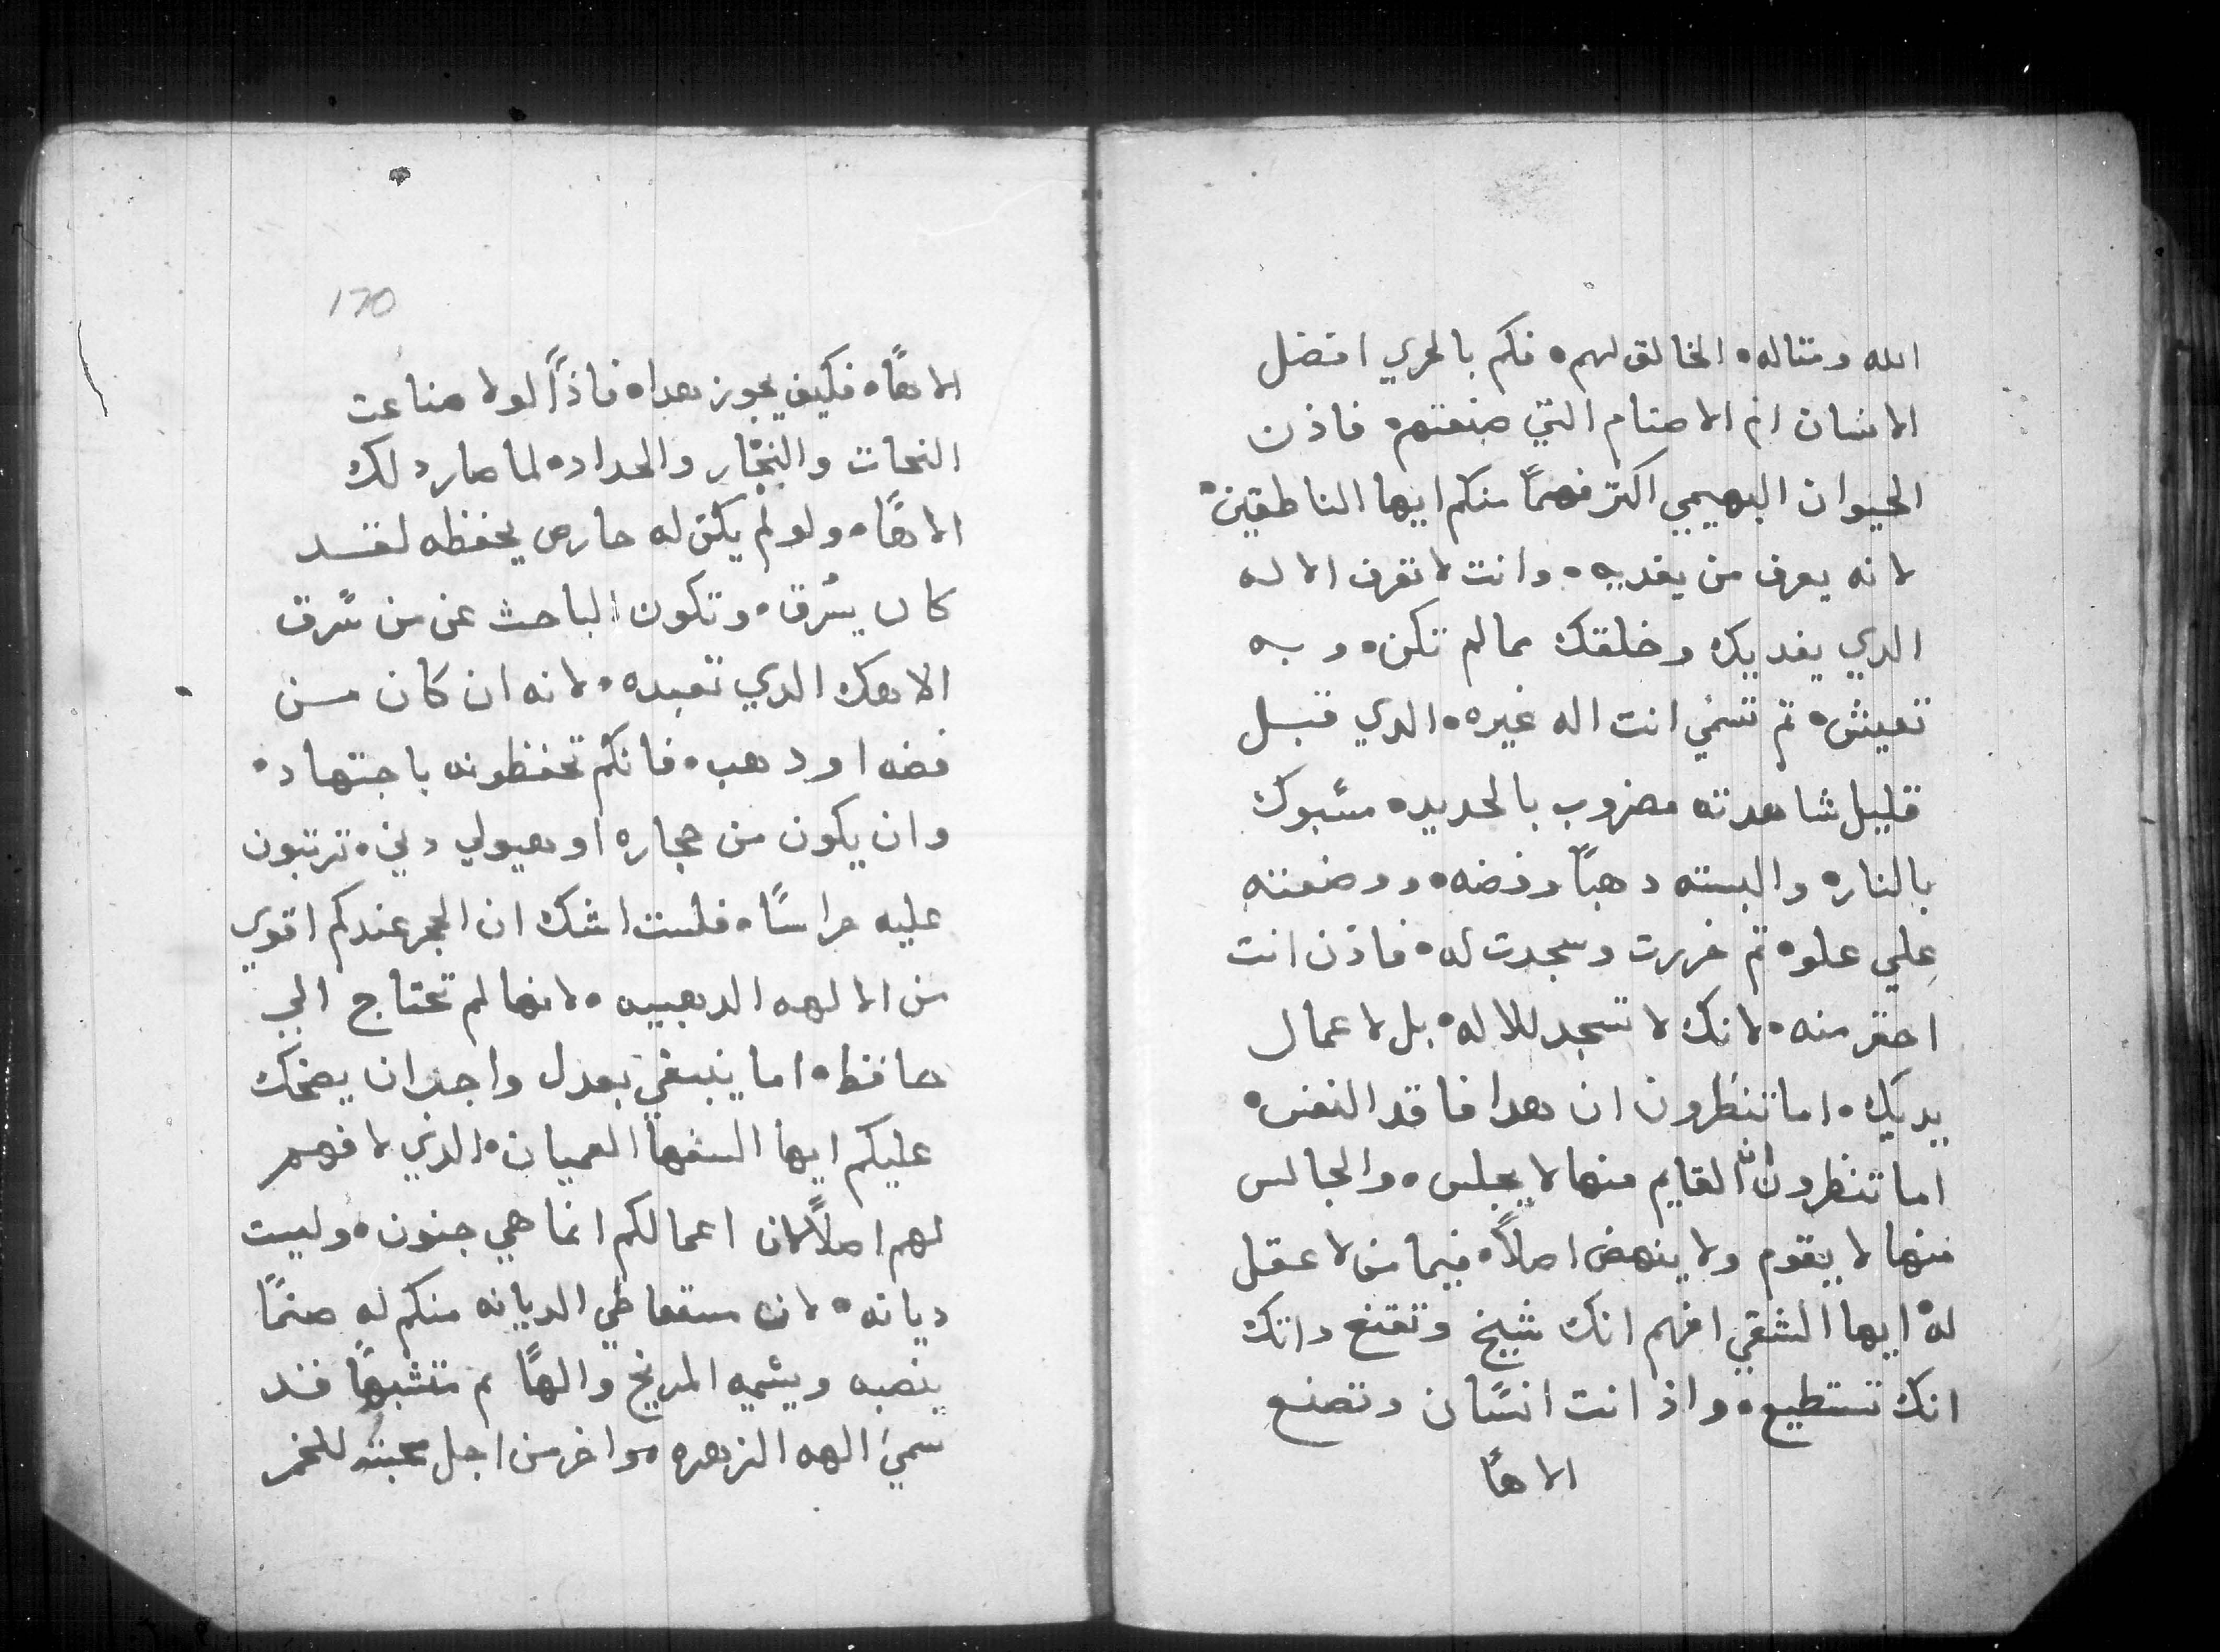 الله ومثاله ه الخالق لهم ه فكم بالحري افضل
الانسان ام الاصنام التي صنعتهم ه فاذن
الحيوان البهيمي اكتر فهمًا منكم ايها الناطقين ه
لانه يعرف من يغديه ه وانت لا تعرف الاله
الدي يغديك وخلقك مما لم تكن ه وبه
تعيش ه تم تسمي انت اله غيره ه الدي قبل
قليل شاهدته مضروب بالحديد ه مسبوك
بالنار ه والبسته دهبًا وفضه ه ووضعته
علي علو ه تم خررت وسجدت له ه فاذن انت
احقر منه ه لانك لا تسجد للاله ه بل لاعمال
يديك ه اما تنظرون ان هدا فاقد النفس ه
اما تنظرون ان القايم منها لا يجلس ه والجالس
منها لا يقوم ولا ينهض اصلاً ه فيا من لا عقل
له ه ايها الشقي افهم انك شيخ وتقنع وانك
انك تستطيع ه واذ انت انسان وتصنع
الاهًا
170
الاهًا ه فكيف يجوز هدا ه فاذًا لولا صناعت
النحات والنجار والحداد ه لما صار دلك
الاهًا ه ولو لم يكن له حارص يحفظه لقد
كان يسرق ه وتكون الباحث عن من سرق
الاهك الدي تعبده ه لانه ان كان من
فضه او دهب ه فانكم تحفظونه باجتهاد ه
وان يكون من حجاره او هيولي دني ه ترتبون
عليه حراسًا ه فلست اشك ان الحجر عندكم اقوي
من الالهه الدهبيه ه لانها لم تحتاج الي
حافظ ه اما ينبغي بعدل واجب ان يضحك
عليكم ايها السفها العميان ه الدي لا فهم
لهم اصلاً لان اعمالكم انما هي جنون ه وليست
ديانه ه لان متعاطي الديانه منكم له صنمًا
ينصبه ويسميه المريخ والهًا تم متشبهًا فقد
سمي الهه الزهره ه واخر من اجل محبته للخمر